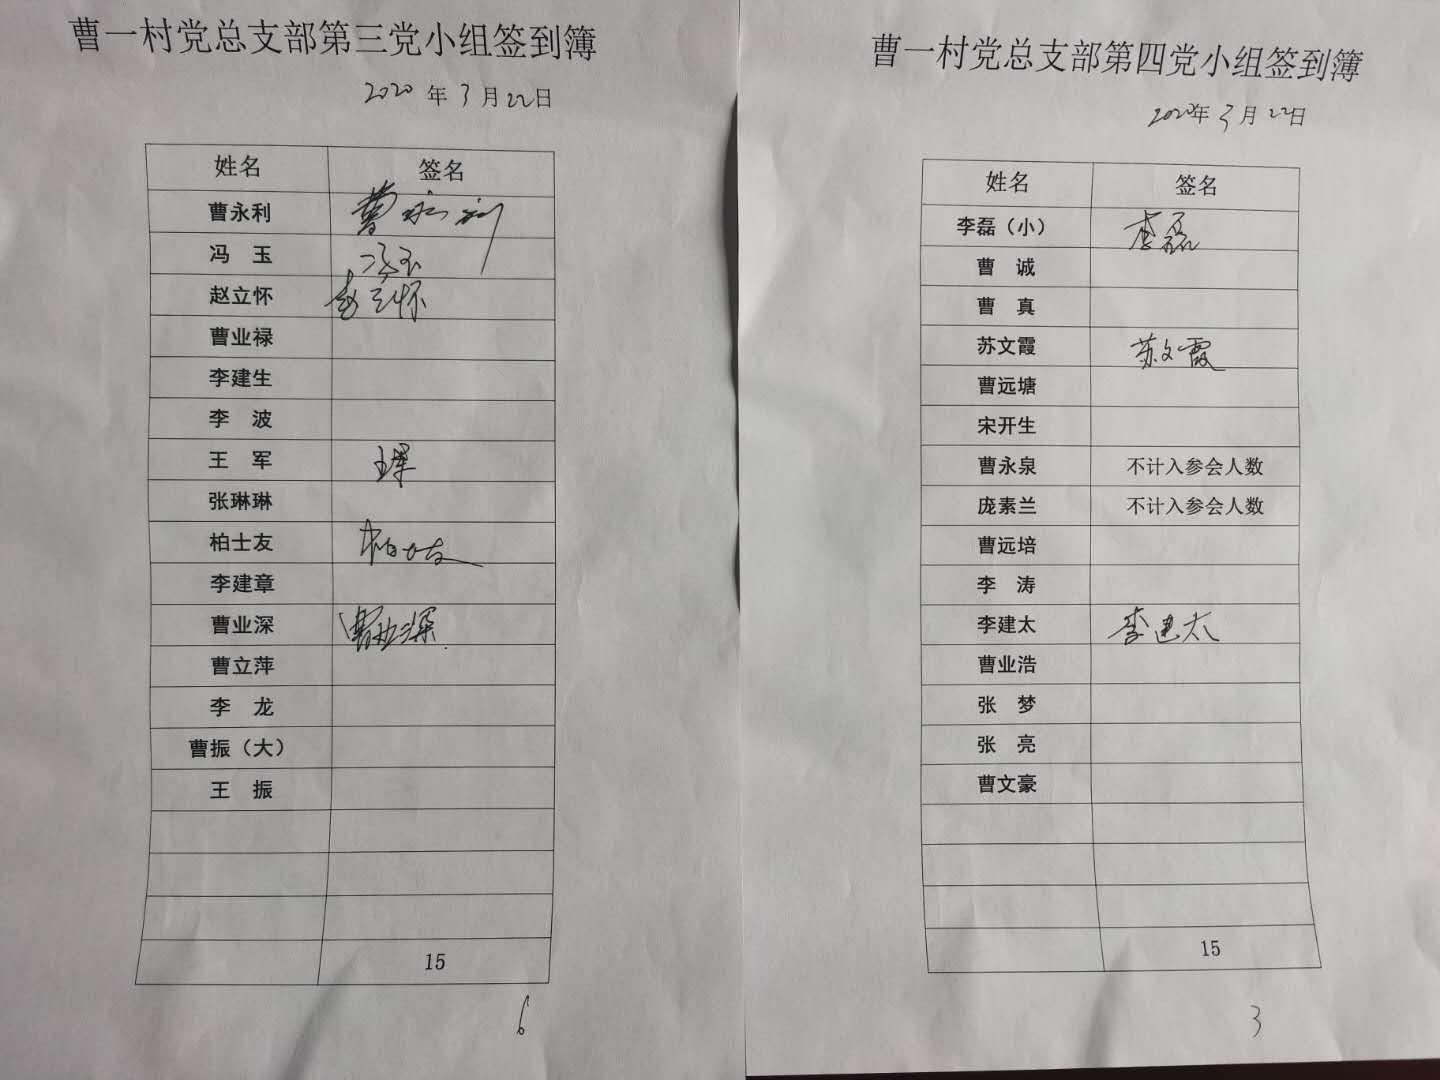 曹一村党总支部第三党小组签到簿
2020年3月22日
姓名 签名
曹永利 曹永利
冯玉 冯玉
赵立怀 赵立怀
曹业禄
李建生
李波
王军 王军
张琳琳
柏士友 柏士友
李建章
曹业深 曹业深
曹立萍
李龙
曹振（大）
王振
15
6
曹一村党总支部第四党小组签到簿
2020年3月22日
姓名 签名
李磊（小） 李磊
曹诚
曹真
苏文霞 苏文霞
曹远塘
宋开生
曹永泉 不计入参会人数
庞素兰 不计入参会人数
曹远培
李涛
李建太 李建太
曹业浩
张梦
张亮
曹文豪
15
3